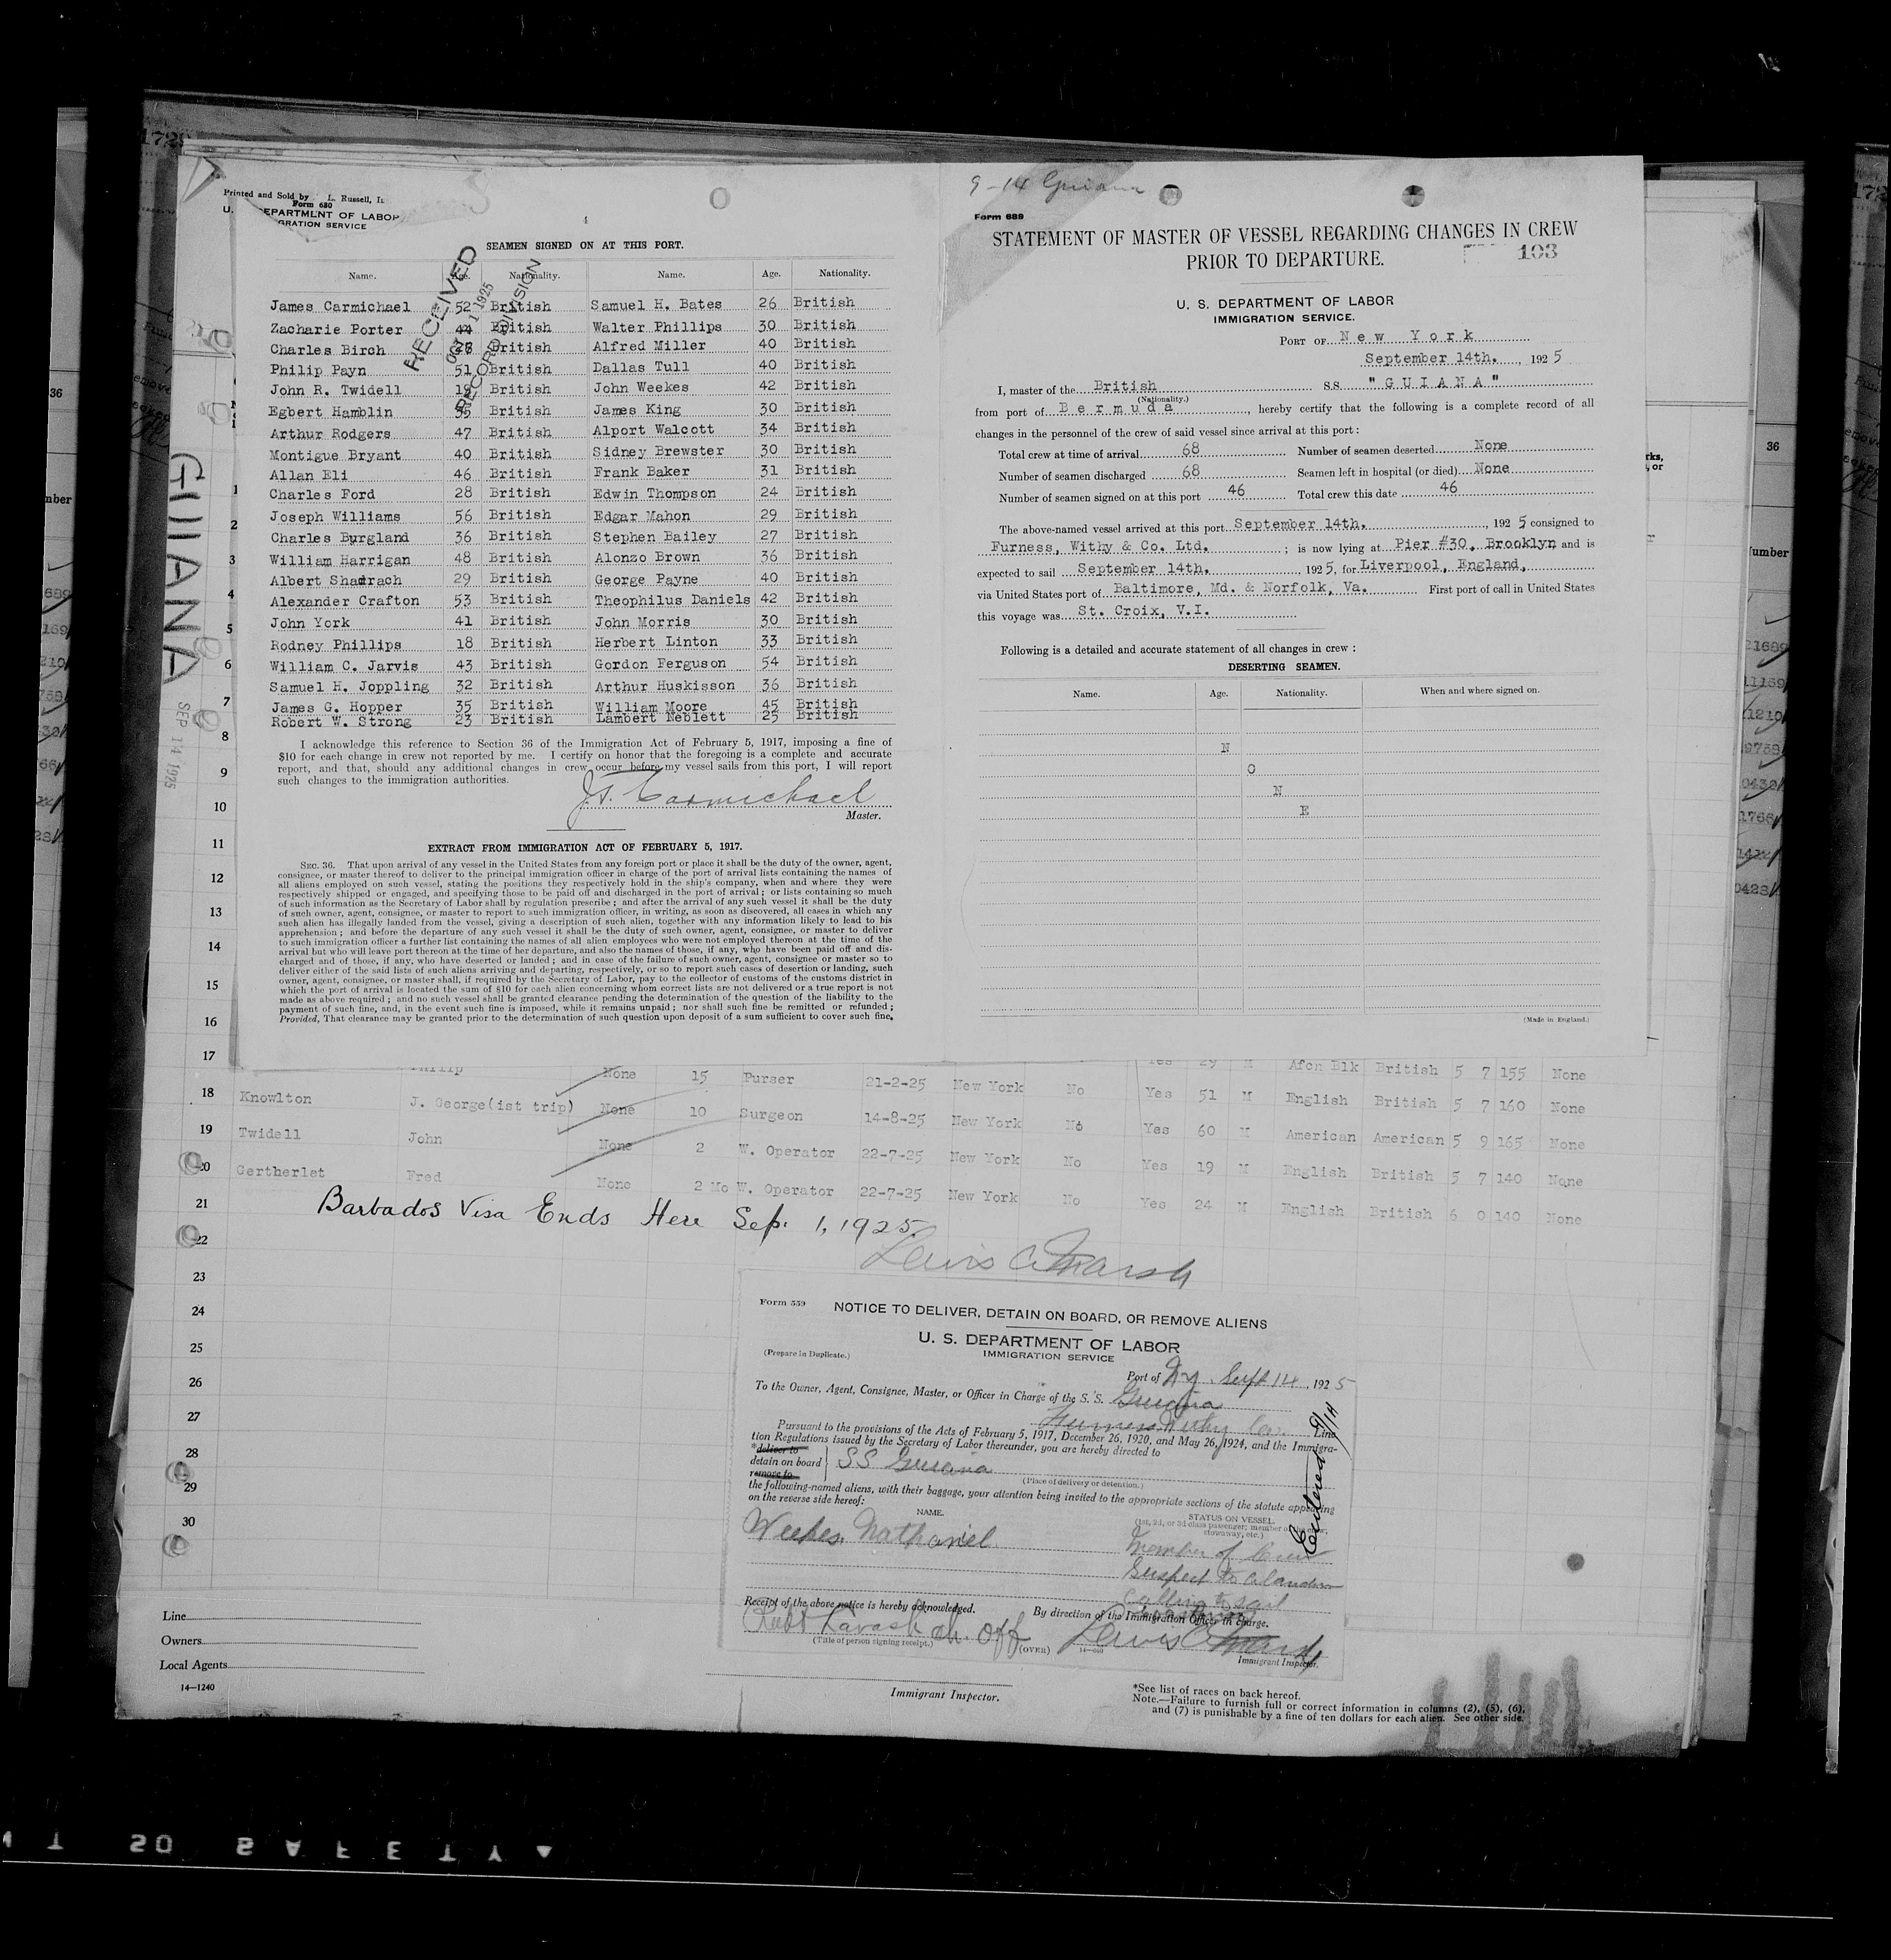 Printed and Sold by L. Russell,
Form 680
DEPARTMENT OF LABOR
GRATION SERVICE
SEAMEN SIGNED ON AT THIS PORT.
Name. Age. Nationality. Name. Age. Nationality.
RECEIVED
1925
RECORD DIVISION
James Carmichael 52 British Samuel H. Bates 26 British
Zacharie Porter 44 British Walter Phillips 30 British
Charles Birch British Alfred Miller 40 British
Philip Payn 51 British Dallas Tull 40 British
John R. Twidell 19 British John Weekes 42 British
Egbert Hamblin British James King 30 British
Arthur Rodgers 47 British Alport Walcott 34 British
Montigue Bryant 40 British Sidney Brewster 30 British
Allan Eli 46 British Frank Baker 31 British
Charles Ford 28 British Edwin Thompson 24 British
Joseph Williams 56 British Edgar Mahon 29 British
Charles Burgland 36 British Stephen Bailey 27 British
William Harrigan 48 British Alonzo Brown 36 British
Albert Shadrach 29 British George Payne 40 British
Alexander Crafton 53 British Theophilus Daniels 42 British
John York 41 British John Morris 30 British
Rodney Phillips 18 British Herbert Linton 33 British
William C. Jarvis 43 British Gordon Ferguson 54 British
Samuel H. Joppling 32 British Arthur Huskisson 36 British
James G. Hopper 35 British William Moore 45 British
Robert W. Strong 23 British Lambert Neblett 25 British
I acknowledge this reference to Section 36 of the Immigration Act of February 5, 1917, imposing a fine of
$10 for each change in crew not reported by me. I certify on honor that the foregoing is a complete and accurate
report, and that, should any additional changes in crew occur before my vessel sails from this port, I will report
such changes to the immigration authorities.
J. T. Carmichael
Master.
EXTRACT FROM IMMIGRATION ACT OF FEBRUARY 5, 1917.
SEC. 36. That upon arrival of any vessel in the United States from any foreign port or place it shall be the duty of the owner, agent,
consignee, or master thereof to deliver to the principal immigration officer in charge of the port of arrival lists containing the names of
all aliens employed on such vessel, stating the positions they respectively hold in the ship's company, when and where they were
respectively shipped or engaged, and specifying those to be paid off and discharged in the port of arrival; or lists containing so much
of such information as the Secretary of Labor shall by regulation prescribe; and after the arrival of any such vessel it shall be the duty
of such owner, agent, consignee, or master to report to such immigration officer, in writing, as soon as discovered, all cases in which any
such alien has illegally landed from the vessel, giving a description of such alien, together with any information likely to lead to his
apprehension; and before the departure of any such vessel it shall be the duty of such owner, agent, consignee, or master to deliver
to such immigration officer a further list containing the names of all alien employees who were not employed thereon at the time of the
arrival but who will leave port thereon at the time of her departure, and also the names of those, if any, who have been paid off and dis-
charged and of those, if any, who have deserted or landed; and in case of the failure of such owner, agent, consignee or master so to
deliver either of the said lists of such aliens arriving and departing, respectively, or so to report such cases of desertion or landing, such
owner, agent, consignee, or master shall, if required by the Secretary of Labor, pay to the collector of customs of the customs district in
which the port of arrival is located the sum of $10 for each alien concerning whom correct lists are not delivered or a true report is not
made as above required; and no such vessel shall be granted clearance pending the determination of the question of the liability to the
payment of such fine, and, in the event such fine is imposed, while it remains unpaid; nor shall such fine be remitted or refunded;
Provided, That clearance may be granted prior to the determination of such question upon deposit of a sum sufficient to cover such fine,
9-14 Guiana
Form 689
STATEMENT OF MASTER OF VESSEL REGARDING CHANGES IN CREW
PRIOR TO DEPARTURE.
103
U. S. DEPARTMENT OF LABOR
IMMIGRATION SERVICE.
PORT OF New York
September 14th, 1925
I, master of the British SS "GUIANA"
(Nationality.)
from port of Bermuda, hereby certify that the following is a complete record of all
changes in the personnel of the crew of said vessel since arrival at this port:
Total crew at time of arrival 68 Number of seamen deserted None
Number of seamen discharged 68 Seamen left in hospital (or died) None
Number of seamen signed on at this port 46 Total crew this date 46
The above-named vessel arrived at this port September 14th, 1925 consigned to
Furness, Withy & Co. Ltd. ; is now lying at Pier #30, Brooklyn and is
expected to sail September 14th, 1925, for Liverpool, England,
via United States port of Baltimore, Md. & Norfolk, Va. First port of call in United States
this voyage was St. Croix, V.I.
Following is a detailed and accurate statement of all changes in crew:
DESERTING SEAMEN.
Name. Age. Nationality. When and where signed on.
N
O
N
E
(Made in England.)
GUIANA
SEP 14 1925
1
2
3
4
5
6
7
8
9
10
11
12
13
14
15
16
17
Philip None 15 Purser 21-2-25 New York No Yes 29 M Afcn Blk British 5 7 155 None
18 Knowlton J. George(ist trip) None 10 Surgeon 14-8-25 New York No Yes 51 M English British 5 7 160 None
19 Twidell John None 2 W. Operator 22-7-25 New York No Yes 60 M American American 5 9 165 None
20 Gertherlet Fred None 2 Mo W. Operator 22-7-25 New York No Yes 19 M English British 5 7 140 None
21 Yes 24 M English British 6 0 140 None
Barbados Visa Ends Here Sep. 1, 1925.
22
Lewis C. Marsh
23
24
25
26
27
28
29
30
Form 559
NOTICE TO DELIVER, DETAIN ON BOARD, OR REMOVE ALIENS
U. S. DEPARTMENT OF LABOR
IMMIGRATION SERVICE
(Prepare in Duplicate.)
Port of NY Sept 14, 1925
To the Owner, Agent, Consignee, Master, or Officer in Charge of the S. S. Guiana
Furness Withy Co. Line
Pursuant to the provisions of the Acts of February 5, 1917, December 26, 1920, and May 26, 1924, and the Immigra-
tion Regulations issued by the Secretary of Labor thereunder, you are hereby directed to
*deliver to
detain on board SS Guiana
remove to
(Place of delivery or detention.)
the following-named aliens, with their baggage, your attention being invited to the appropriate sections of the statute appearing
on the reverse side hereof:
NAME. STATUS ON VESSEL.
(1st, 2d, or 3d class passenger; member of crew; stowaway, etc.)
Weekes, Nathaniel Member of Crew
Suspect
to sail
Entered 9/14
Receipt of the above notice is hereby acknowledged. By direction of the Immigration Officer in charge.
Ch. Off
(Title of person signing receipt.) (OVER) 14-690
Lewis C. Marsh
Immigrant Inspector.
Line
Owners
Local Agents
14-1240
Immigrant Inspector.
*See list of races on back hereof.
Note.—Failure to furnish full or correct information in columns (2), (5), (6),
and (7) is punishable by a fine of ten dollars for each alien. See other side.
36
21689
11169
1210
9738
0432
1766
1422
0428
SAFETY